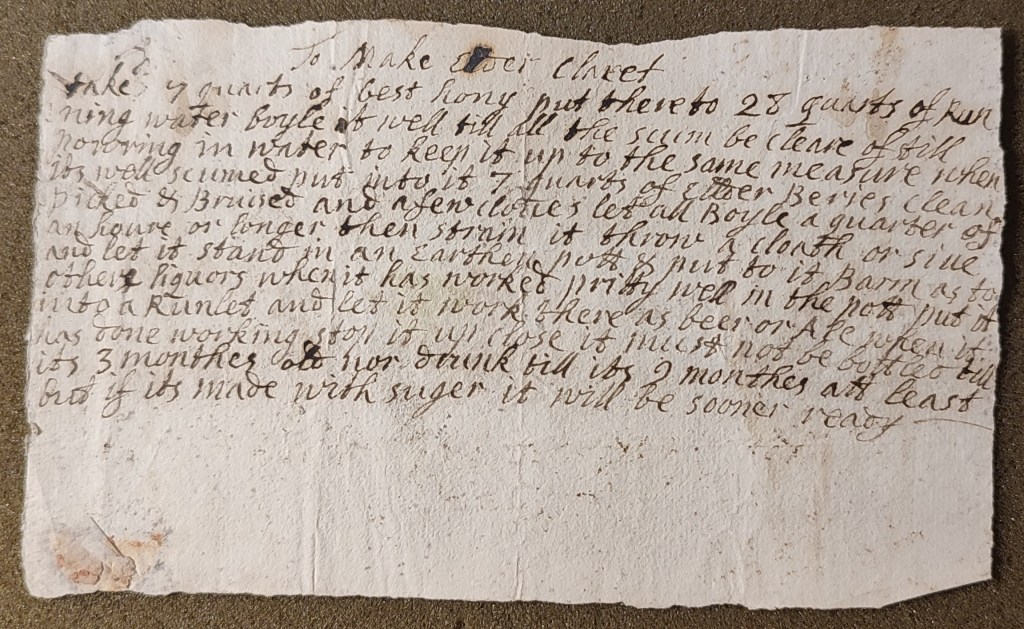 To Make Elder Claret
take 7 quarts of best hony put there to 28 quarts of Run
ning water boyle it well till all the scum be cleare of still
powring in water to keep it up to the same measure when
its well scumed put into it 7 quarts of Elder Beries clean
picked & Bruised and a few cloves let all Boyle a quarter of
an houre or longer then strain it throw a cloath or sive
and let it stand in an Earthen pott & put to it Barm as to
others liquors when it has worked pritty well in the pott put it
into a Runlet and let it work there as beer or Ale when it
has done working stop it up close it must not be botled till
its 3 monthes old nor drunk till its 9 monthes att least
but if its made with suger it will be sooner ready